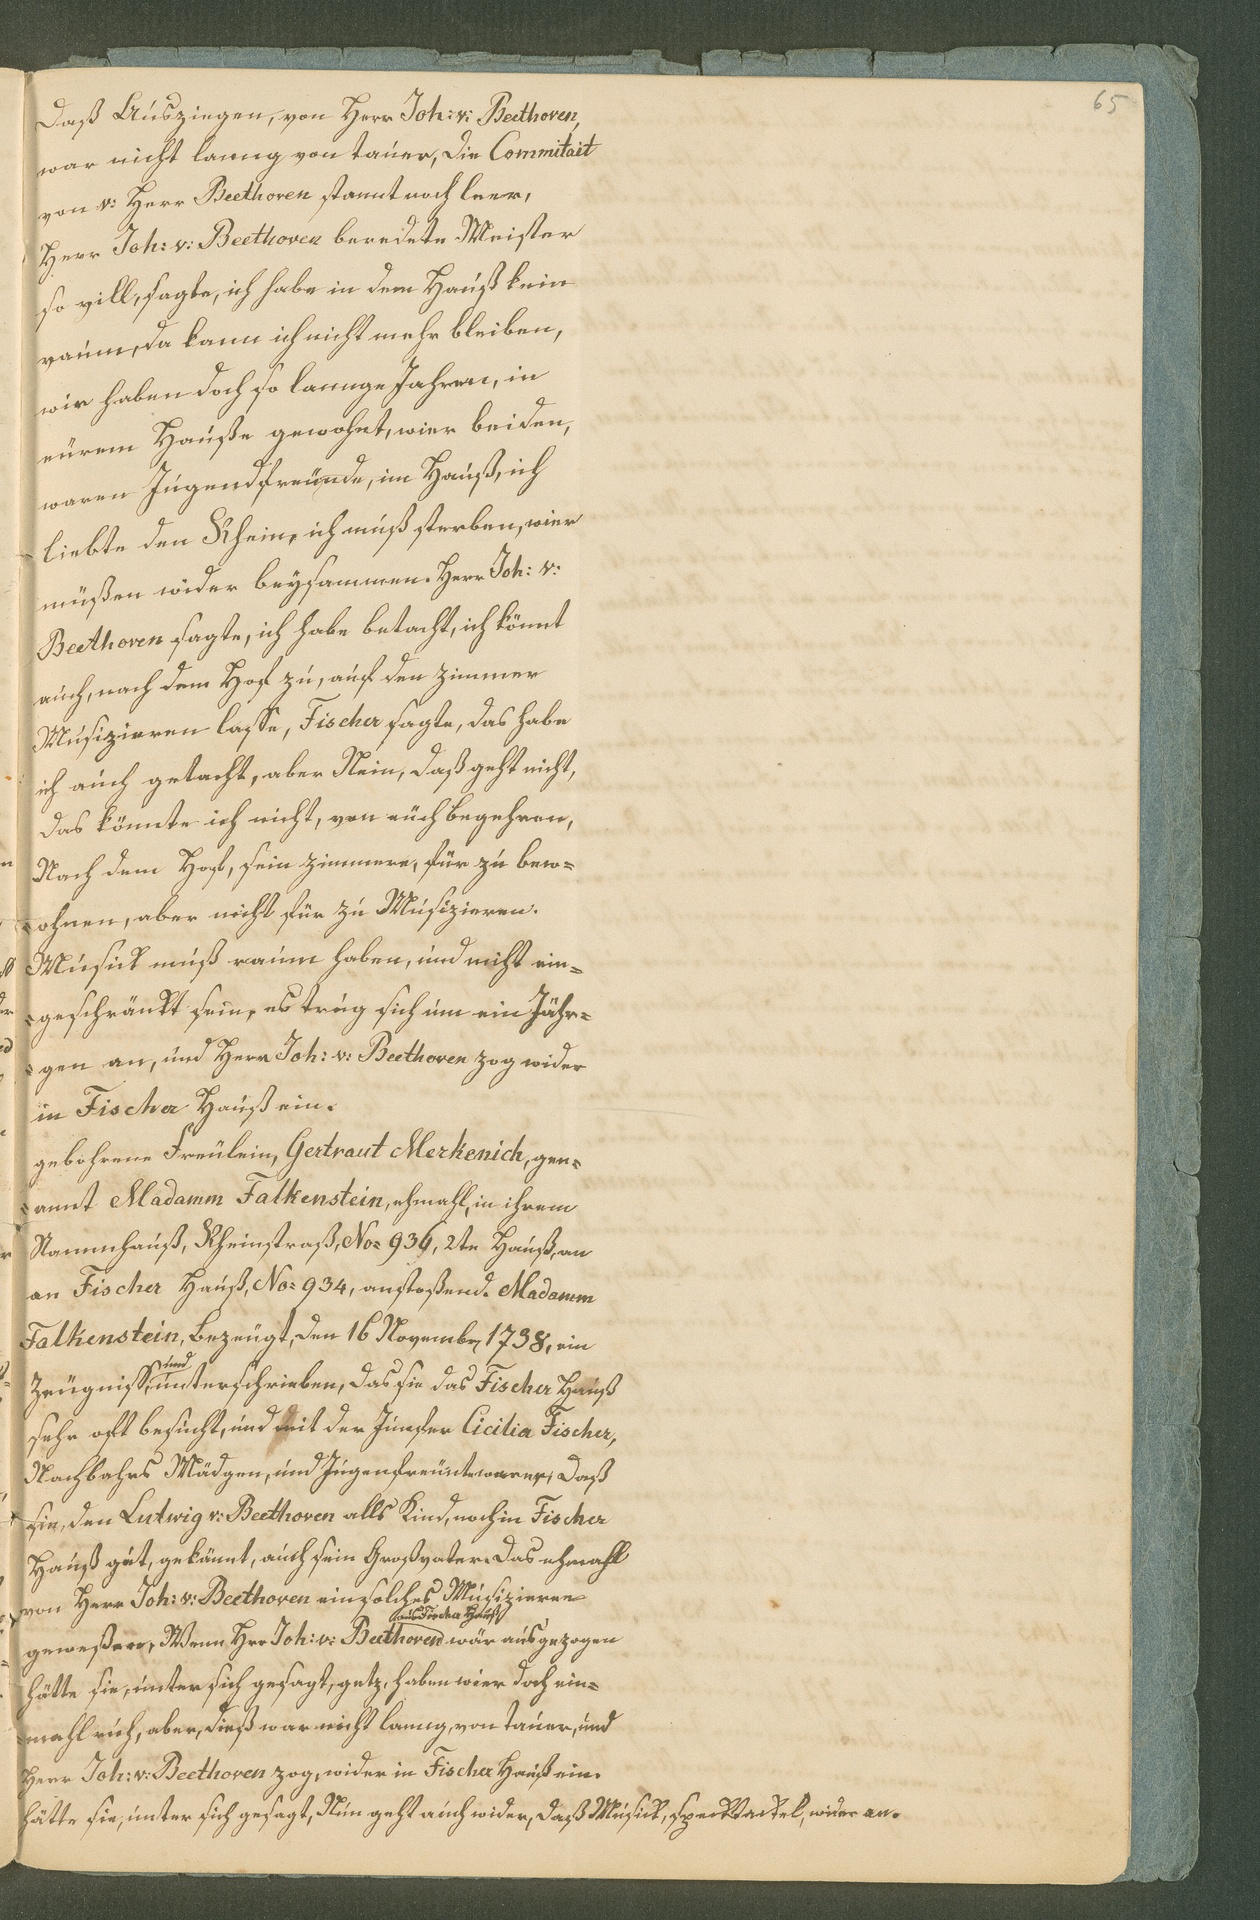 65
Daß Ausziegen, von Herr Joh: v: Beethoven,
war nicht lanng von tauer, die Commitait
von v: Herr Beethoven stannt noch leer,
Herr Joh: v: Beethoven beredete Meister
so vill, sagte, ich habe in dem Hauß kein
raum, da kann ich nicht mehr bleiben,
wir haben doch so lannge Jahren, in
eürem Hauße gewohnt, wier beiden,
waren Jugendfreünde, im Hauß, ich
liebte den Rhein, ich muß sterben, wier
müßen wider beysammen. Herr Joh: v:
Beethoven sagte, ich habe betacht, ich könnt
auch, nach dem Hof zu, auf den zimmer
Musizieren lasse, Fischer sagte, das habe
ich auch getacht, aber Nein, daß geht nicht,
das könnte ich nicht, von euch begehren,
Nach dem Hof, sein zimmere, für zu bew=
=ohnen, aber nicht für zu Musizieren.
Musick muß raum haben, und nicht ein=
=geschränkt sein, es trug sich um ein Jähr=
=gen an, und Herr Joh: v: Beethoven zog wider
in Fischer Hauß ein.
gebohrene Freülein, Gertraut Merkenich, gen=
=annt Madamm Falkenstein, ehmahl, in ihrem
Stammhauß, Rheinstraß, No= 936, 2te Hauß, an
an Fischer Hauß, No= 934, anstoßend. Madamm
Falkenstein, Bezeugt, den 16 Novembr 1738, ein
Zeügniss, und unterschrieben, das sie das Fischer Hauß
sehr oft besucht, und mit der Jumfer Cicilia Fischer,
Nachbahrs Mädgen, und Jugenfreünt waren, Daß
sie, den Lutwig v: Beethoven alls Kind, noch in Fischer
Hauß gut, gekännt, auch sein Großvater. Das ehmahl
von Herr Joh: v: Beethoven ein solches Musizieren
geweßen, Wenn Herr Joh: v: Beethoven aus Fischer Hauß wär ausgezogen
hätte sie, unter sich gesagt, getz, haben wier doch ein=
=mahl ruh, aber, dieß war nicht lanng, von tauer, und
Herr Joh: v: Beethoven zog, wider in Fischer Hauß ein.
hätte sie, unter sich gesagt, Nun geht auch wider, daß Musick, specktackel, wider an.